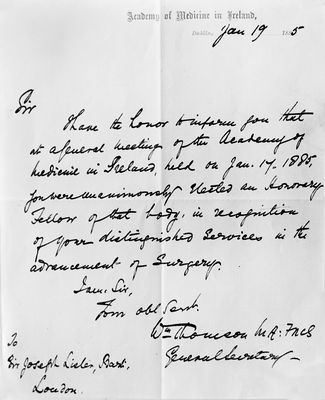 Academy of Medicine in Ireland,
Dublin, Jan 19 1885
Sir
I have the honor to inform you that
at a General Meeting of the Academy of
Medicine in Ireland, held on Jan. 17. 1885,
you were unanimously elected an Honorary
Fellow of that body, in recognition
of your distinguished services in the
advancement of Surgery.
I am, Sir,
Your obt Servt.
Wm Thomson M.A: FRCS
General Secretary
To
Sir Joseph Lister, Bart.
London.